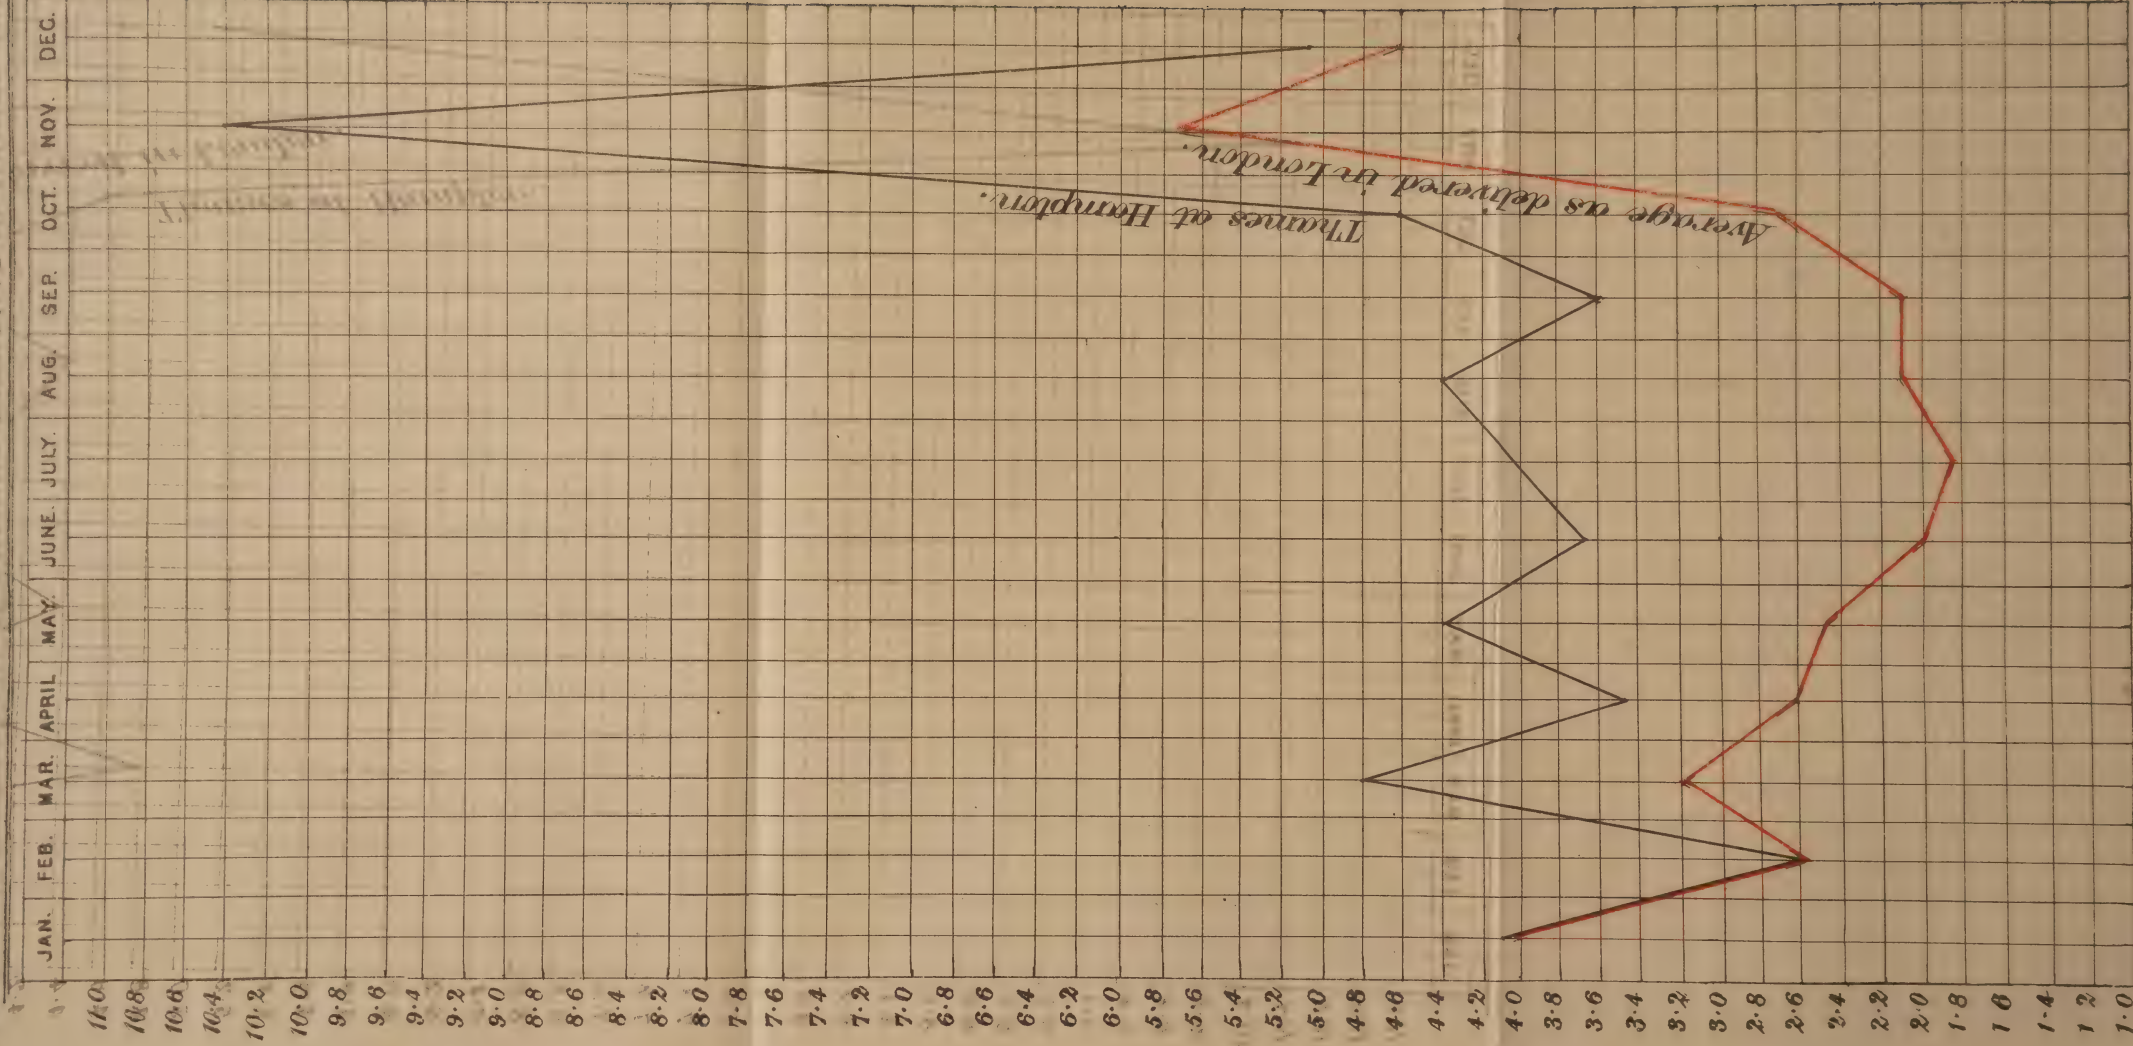 JAN. FEB. MAR. APRIL MAY. JUNE. JULY. AUG. SEP. OCT. NOV. DEC.
11.0
10.8
10.6
10.4
10.2
10.0
9.8
9.6
9.4
9.2
9.0
8.8
8.6
8.4
8.2
8.0
7.8
7.6
7.4
7.2
7.0
6.8
6.6
6.4
6.2
6.0
5.8
5.6
5.4
5.2
5.0
4.8
4.6
4.4
4.2
4.0
3.8
3.6
3.4
3.2
3.0
2.8
2.6
2.4
2.2
2.0
1.8
1 6
1.4
1 2
1.0
Thames at Hampton.
Average as delivered in London.